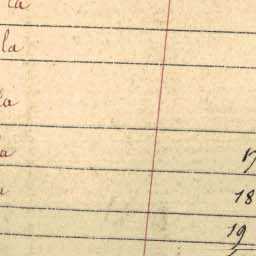 la
la
la
la 17
a 18
19